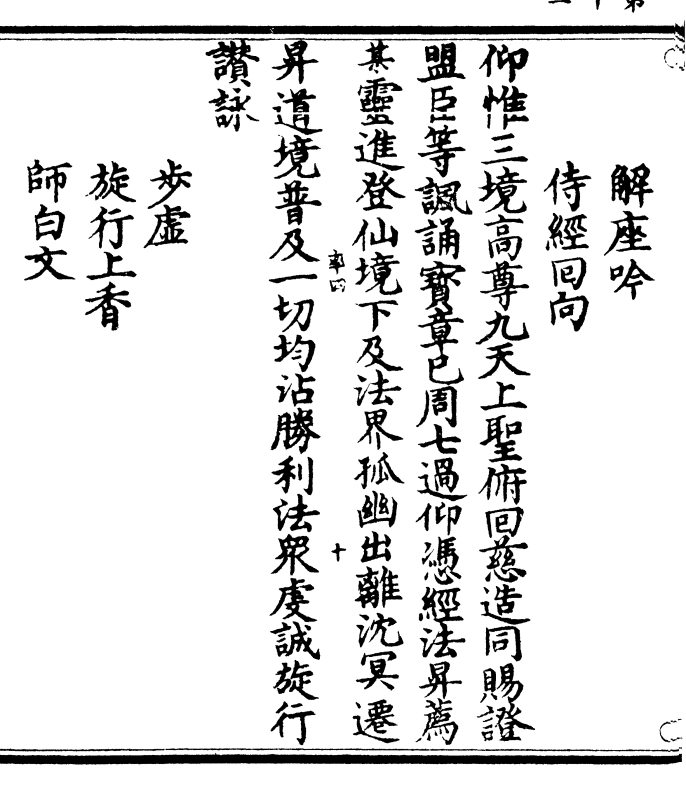 解座吟
侍經回向
仰惟三境高尊九天上聖俯回慈造同賜證
盟臣等諷誦寶章已周七過仰憑經法昇薦
某靈進登仙境下及法界孤幽出離沈冥遷
昇道境普及一切均沾勝利法眾虔誠旋行
讚詠
步虛
旋行上香
師白文